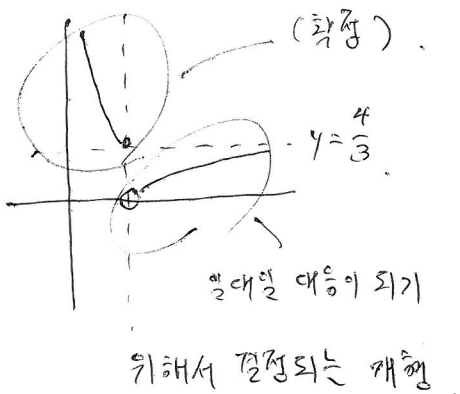 (확정).
y = 4/3
일대일 대응이 되기
위해서 결정되는 개형